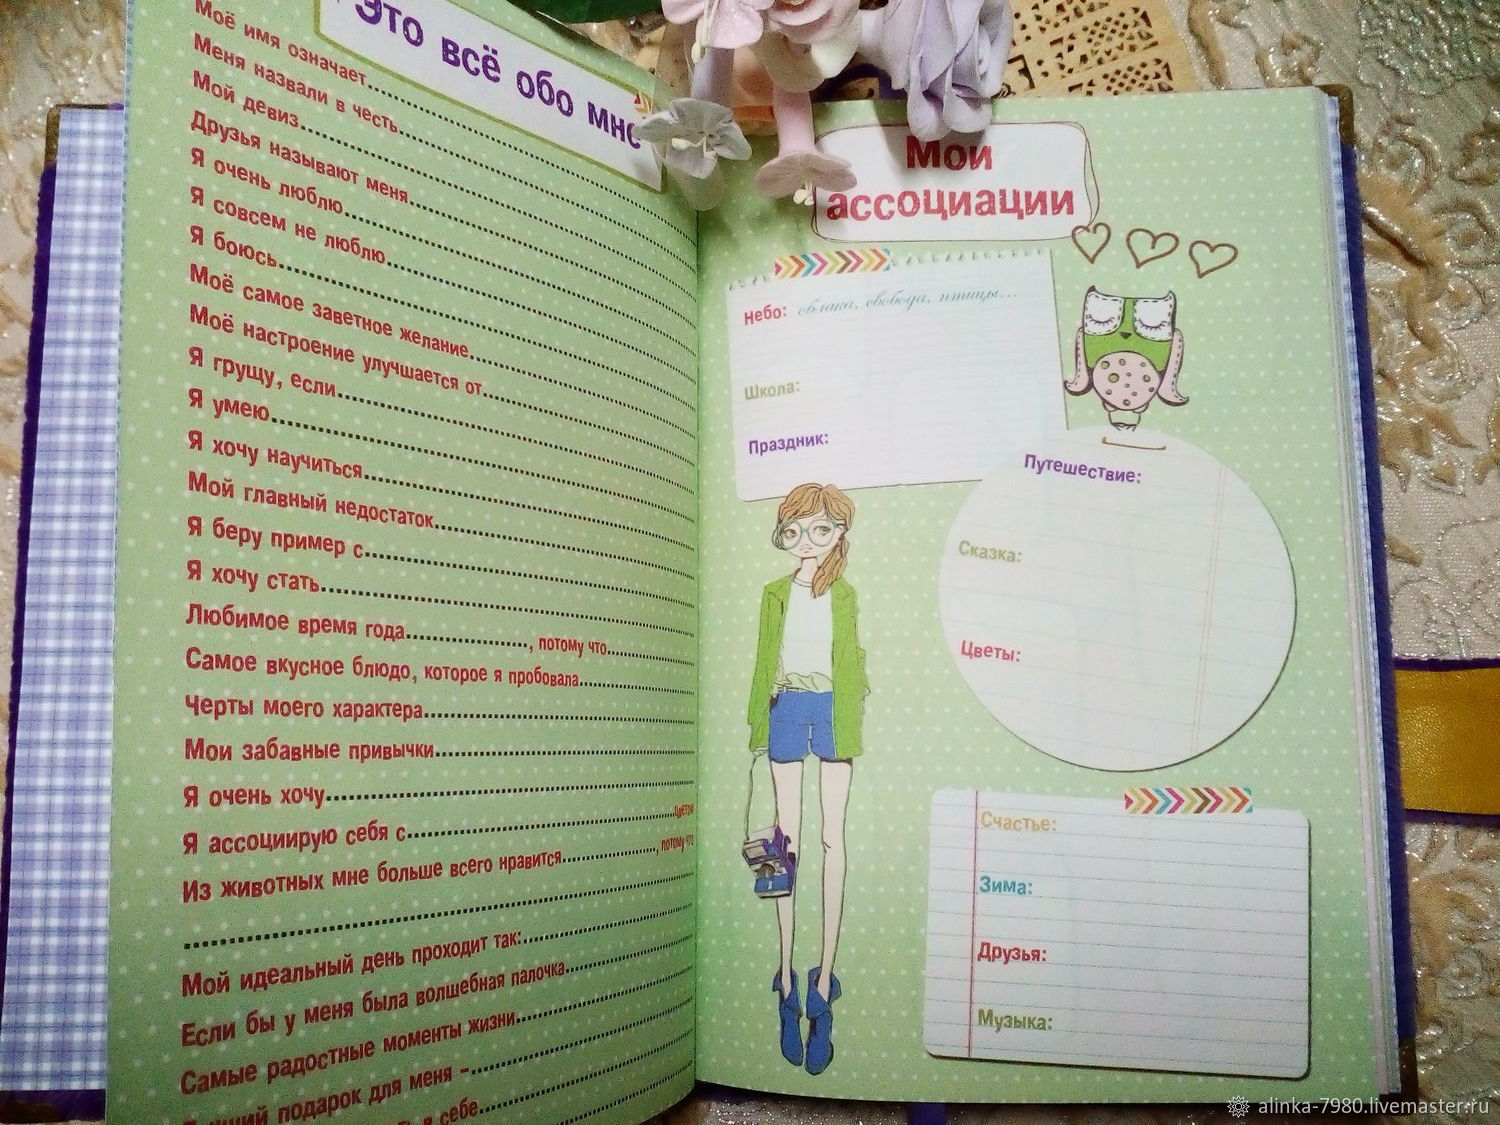 Это всё обо мне
Моё имя означает
Меня назвали в честь
Мой девиз
Друзья называют меня
Я очень люблю
Я совсем не люблю
Я боюсь
Моё самое заветное желание
Моё настроение улучшается от
Я грущу, если
Я умею
Я хочу научиться
Мой главный недостаток
Я беру пример с
Я хочу стать
Любимое время года..............., потому что
Самое вкусное блюдо, которое я пробовала
Черты моего характера
Мои забавные привычки
Я очень хочу
Я ассоциирую себя с..............цветом
Из животных мне больше всего нравится..............., потому что
Мой идеальный день проходит так:
Если бы у меня была волшебная палочка
Самые радостные моменты жизни
подарок для меня -
в себе
Мои
ассоциации
Небо: облака, свобода, птицы...
Школа:
Праздник:
Путешествие:
Сказка:
Цветы:
Счастье:
Зима:
Друзья:
Музыка:
alinka-7980.livemaster.ru